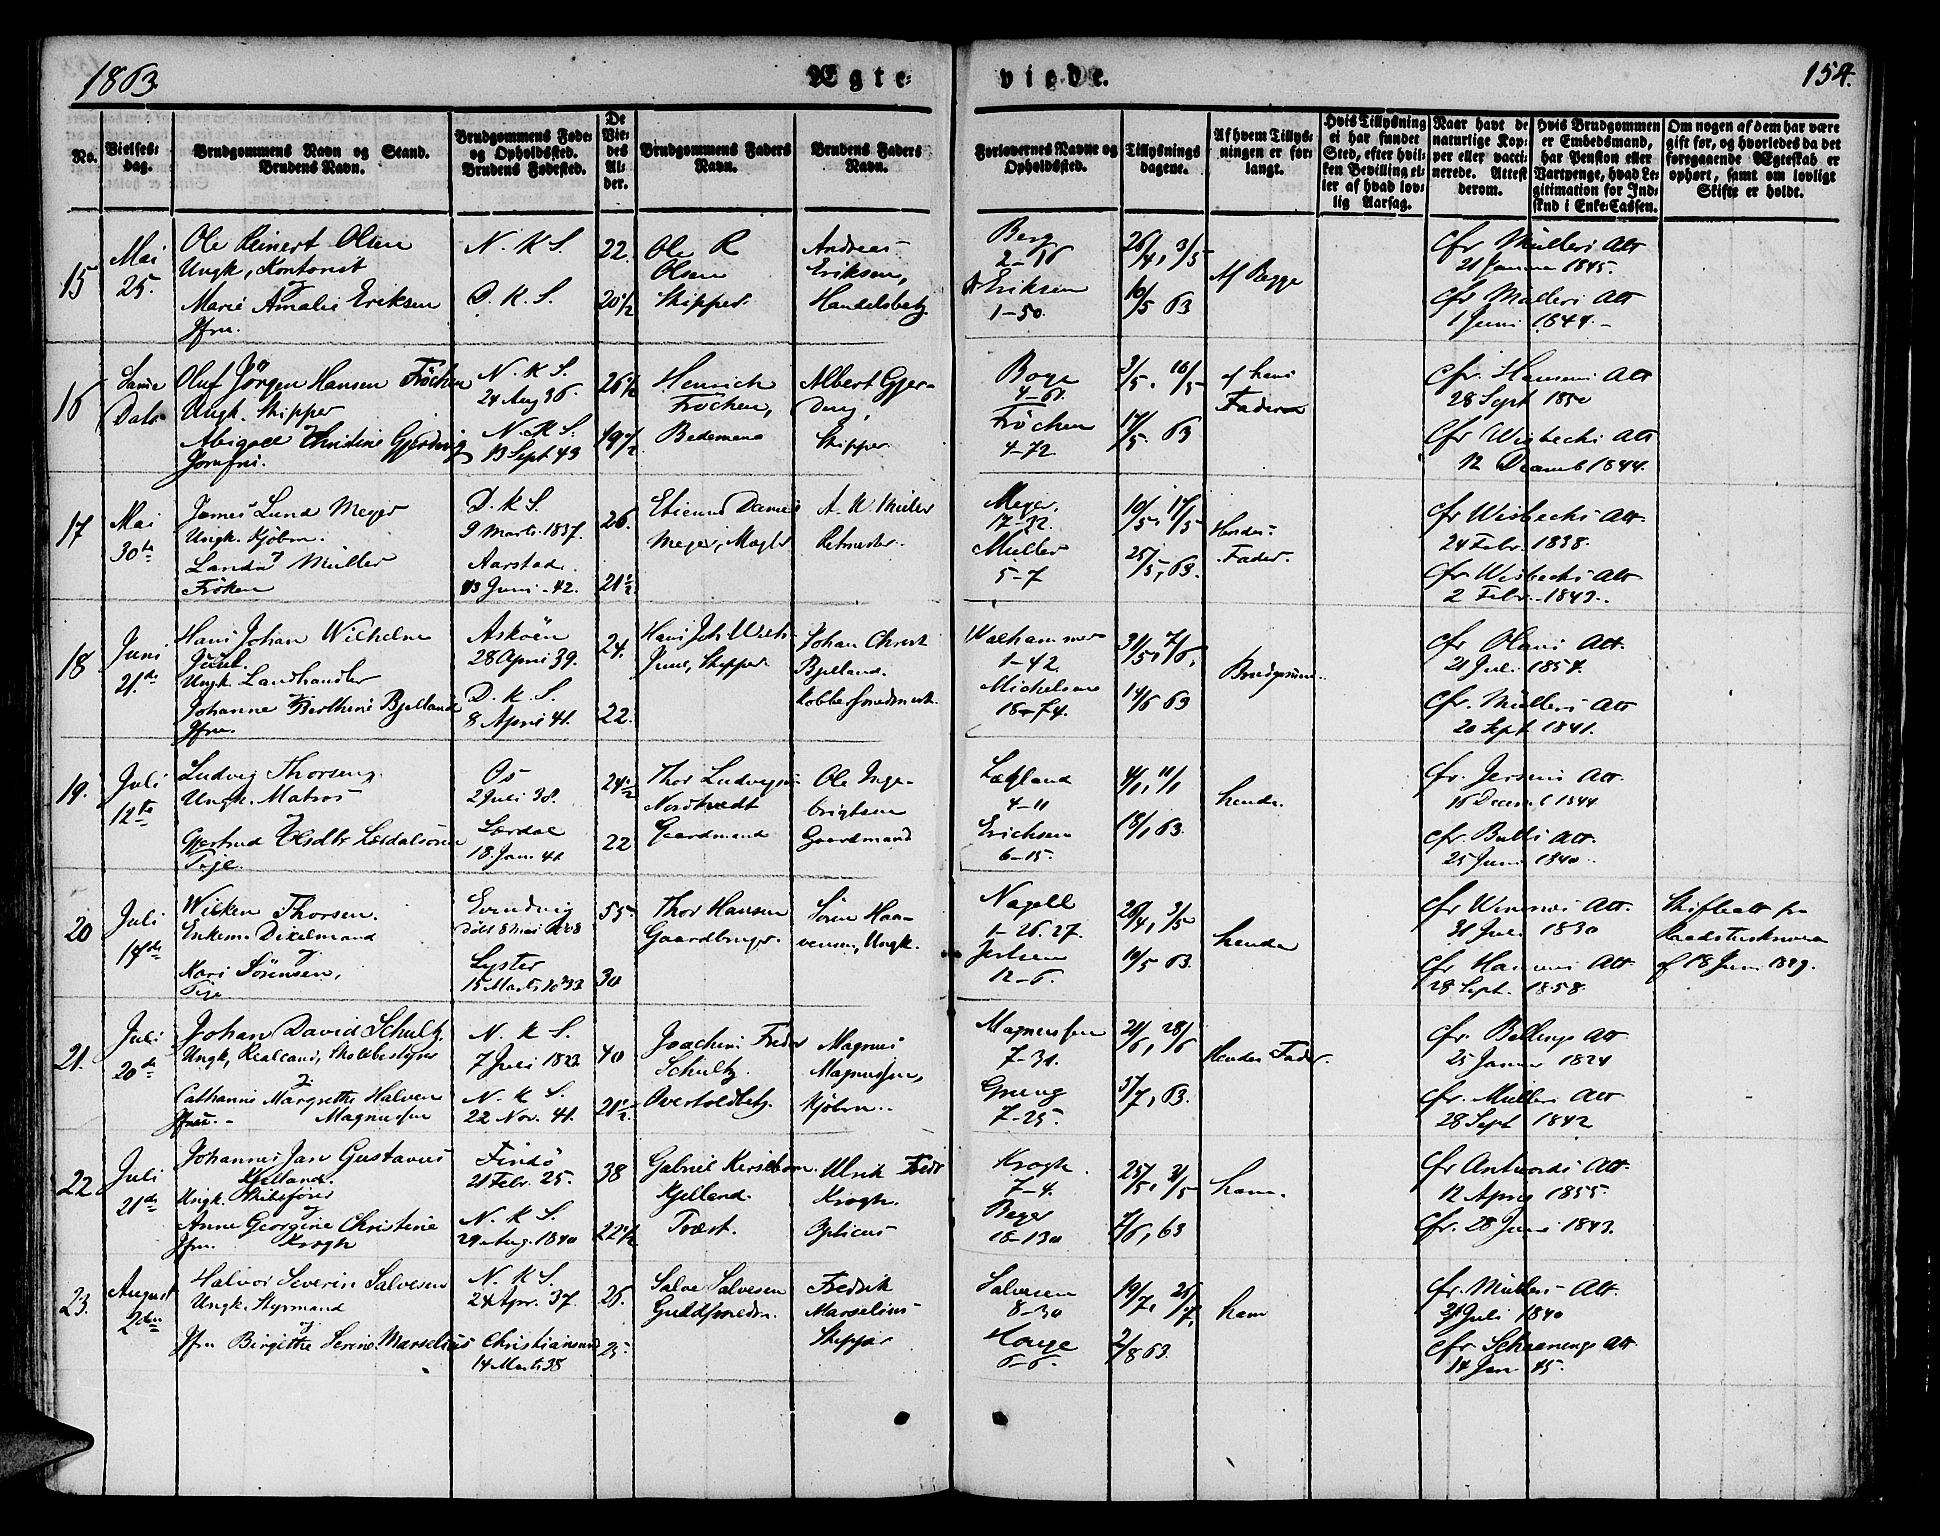 1863.
Ægte-
viede.
154.
No.
Vielses-
dag.
Brudgommens Navn og Stand.
Brudens Navn.
Brudgommens Føde-
og Opholdssted.
Brudens Fødested.
De
Vie-
des
Al-
der.
Brudgommens Faders
Navn.
Brudens Faders
Navn.
Forlovernes Navne og
Opholdssted.
Tillysnings
dagene.
Af hvem Tillys-
ningen er for-
langt.
Hvis Tillysning
ei har fundet
Sted, efter hvil-
ken Bevilling ei-
ler af hvad lov-
lig Aarsag.
Naar havt de
naturlige Kop-
per eller vacci-
nerede. Attest
derom.
Hvis Brudgommen
er Embedsmand,
har Pension eller
Vartpenge, hvad Le-
gitimation for Ind-
skud i Enke-Cassen.
Om nogen af dem har være
gift før, og hvorledes da det
foregaaende Ægteskab er
ophørt, samt om lovligt
Skifte er holdt.
15
Mai
25.
Ole Reinert Olsen
Ungk, Kontorist
Marie Amalie Eriksen
Jfru.
N. K. S.
D. K. S.
22.
20 1/2
Ole R
Olsen
Skipper
Andreas
Eriksen,
Handelsbetj.
Berg
2-16
Eriksen
1-50.
26/4, 3/5
10/5 63
Af Begge
cfr Müllers Att
21 Januar 1845.
cfr Müllers Att
1 Juni 1844.
16
Samme
Dato
Oluf Jörgen Hansen Fröchen
Ungk. Skipper
Abigael Christine Gjerding
Jomfru.
N. K. S.
24 Aug 36.
N. K. S.
13 Sept 43
26 1/2
19 1/2
Henrich
Fröchen,
Bedemand
Albert Gjer-
ding,
Skipper
Boge
4-61.
Fröchen
4-72
3/5, 10/5
17/5. 63
af hans
Fader
cfr. Hansens Att
28 Sept 1850
cfr Wisbechs Att
12 Decemb 1844.
17
Mai
30te
James Lund Meyer
Ungk. Kjöbm.
Müller
Fröken
D. K. S.
9 Marts 1837.
Aarstad.
13 Juni 42.
26.
21 1/2
Daniel
Meyer, Mægler
A. W Müller
Ritmester.
Meyer,
17-32.
Müller
5-7
10/5, 17/5
25/5, 63.
Hendes
Fader.
cfr Wisbechs Att.
24 Febr. 1838.
cfr Wisbechs Att
2 Febr. 1843.
18
Juni
21de
Hans Johan Wilhelm
Juul.
Ungk. Landhandler
Johanne Berthine Bjelland
Jfru.
Askøen
28 April 39.
D. K. S.
8 April 41.
24.
22.
Hans Joh. Wilh.
Juul, Skipper
Johan Christ
Bjelland.
Kobbersmedmest.
Walhammer
1-42.
Michelsen
18-74.
31/5, 7/6,
14/6 63
Brudgommen.
cfr Olans Att.
21 Juli 1854.
cfr. Müllers Att
20 Sept 1841.
19.
Juli
12te
Ludvig Thorsen
Ungk. Matros
Gjertrud Olsdtr Lærdalsören
Pige.
Os
2 Juli 38.
Lærdal
18. Jan. 41
24 1/2
22
Thor Ludvigsen
Nordtvedt
Gaardmand
Ole Inge-
brigtsen
Gaardmand
Løkland
4-11
Erichsen
6-15.
4/1, 11/1
18/1 63.
hende.
cfr. Jersins Att.
16 Decemb 1844
cfr. Bulls Att.
25 Juni 1840.
20
Juli
14de
Wilken Thorsen.
Enkem. Dixelmand
og
Kari Sörensen,
Pige
Evindvig
Döbt 8 Mai 1808
Lyster
15 Marts 1833
55.
30
Thor Hansen
Gaardbruger.
Sören Haa-
vensen, Ungk.
Nagell
1-26.27.
Jersin
12-6.
26/4, 3/5
10/5 63.
hende
cfr Winsnes Att.
31 Juli 1830
cfr Hansens Att.
28 Sept. 1858.
Skifteatt fra
Raadstueskriveren
af 18 Juni 1849.
21.
Juli
20de
Johan David Schultz.
Ungk, Realcand, Skolebestyrer
Cathanis Margrethe Halven
Jfru. Magnusen
N. K. S.
7 Juli 1823
N. K. S.
22 Nov. 41.
40
21 1/2
Joachim Fredr
Schultz.
Overtoldbetj.
Magnus
Magnussen,
Kjöbm.
Magnussen
7-31.
Gruug
7-25.
21/6, 28/6
5/7, 63.
Hendes Fader.
cfr. Bellings Att
25 Januar 1824
cfr. Müllers Att
28 Sept 1842
22
Juli
21de
Johannes Jan Gustavus
Kjelland.
Ungk. Skibsförer
Anne Georgine Christine
Jfru. Krogh
Findö
21 Febr. 25.
N. K. S.
29 Aug. 1840
38
22 1/2
Gabriel Kirsebom
Kjelland.
Præst.
Ulrik Fredr
Krogh.
Opticus
Krogh.
7-4.
Beyer
18-130
25/5, 31/5
7/6, 63
ham.
cfr Antvords Att.
12 April 1855.
cfr. 28 Juni 1843.
23.
August
2den
Halvor Severin Salvesen
Ungk. Styrmand
Jfru Birgitte Serine Marselius
N. K. S.
24 Apr. 37.
Christiansund
14 Marts 38
26.
25.
Salve Salvesen
Guldsmedm.
Fredrik
Marselius
Skipper
Salvesen
8-30
Houge
6-6.
19/7. 26/7,
2/8 63.
ham
cfr. Müllers Att.
21 Juli 1840
cfr. Schaanings Att
14 Jan 45.